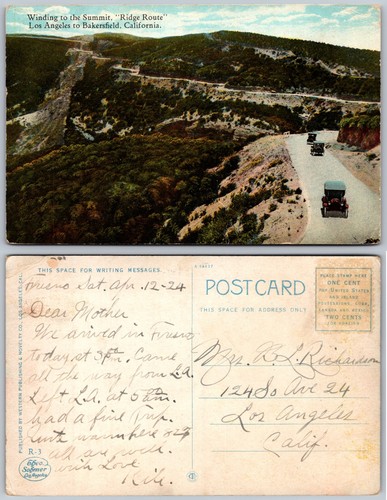 Winding to the Summit, "Ridge Route"
Los Angeles to Bakersfield, California.
THIS SPACE FOR WRITING MESSAGES
Fresno Sat, Apr. 12-24
Dear Mother
We arrived in Fresno
today at 3 Pm. Came
all the way from L.A.
Left L.A. at 5 am.
had a fine trip.
warm here
all are well.
with Love
R-3
PUBLISHED BY WESTERN PUBLISHING & NOVELTY CO., LOS ANGELES, CAL.
POST CARD
THIS SPACE FOR ADDRESS ONLY
PLACE STAMP HERE
ONE CENT
FOR UNITED STATES
AND ISLAND
POSSESSIONS, CUBA,
CANADA AND MEXICO
TWO CENTS
FOR FOREIGN
Mrs. R. L. Richardson
124 So Ave 24
Los Angeles
Calif.